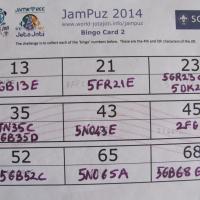 JamPuz 2014
www.world-jotajoti.info/jampuz
Bingo Card 2
SC
The challenge is to collect each of the 'bingo' numbers below. These are the 4th and 5th characters of the
13 21 23
GB13E 5FR21E 5GR23
5DK2
35 43 45
TN35C 5N043E 2F6
GB35D
52 65 68
5GB52C 5N065A 5GB68